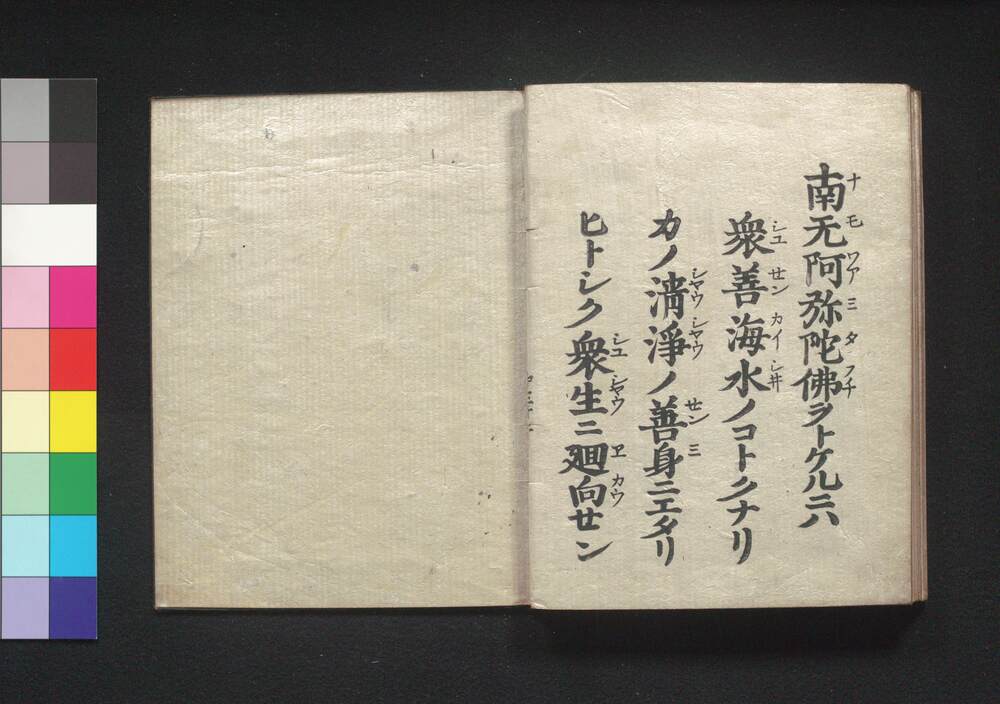 南无阿弥陀佛ヲトケルニハ
衆善海水ノコトクナリ
カノ清淨ノ善身ニエタリ
ヒトシク衆生ニ廻向せン